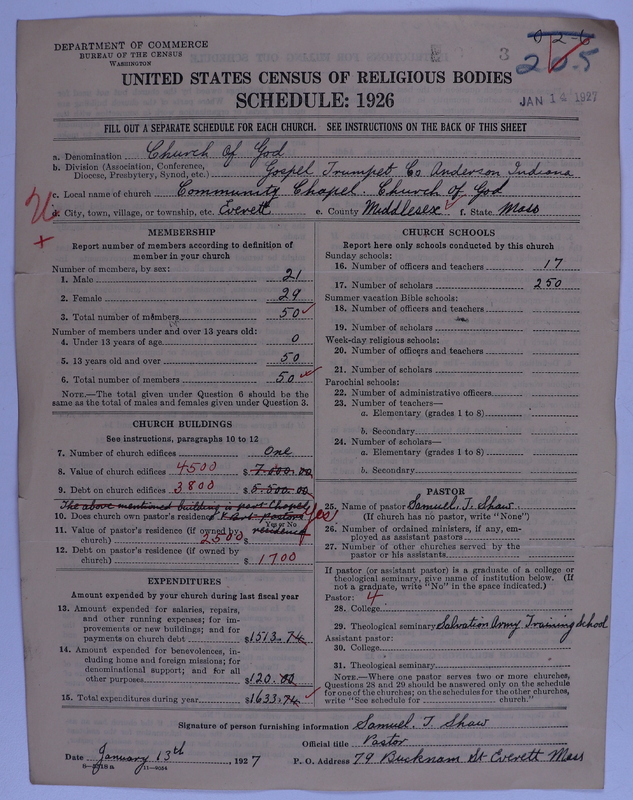 DEPARTMENT OF COMMERCE
BUREAU OF THE CENSUS
WASHINGTON
3
026
205
JAN 14 1927
UNITED STATES CENSUS OF RELIGIOUS BODIES
SCHEDULE: 1926
FILL OUT A SEPARATE SCHEDULE FOR EACH CHURCH. SEE INSTRUCTIONS ON THE BACK OF THIS SHEET
a. Denomination Church Of God
b. Division (Association, Conference, Diocese, Presbytery, Synod, etc.) Gospel Trumpet Co Anderson Indiana
c. Local name of church Community Chapel. Church Of God
d. City, town, village, or township, etc. Everett e. County Middlesex f. State Mass
MEMBERSHIP
Report number of members according to definition of
member in your church
Number of members, by sex:
1. Male 21
2. Female 29
3. Total number of members 50
Number of members under and over 13 years old:
4. Under 13 years of age 0
5. 13 years old and over 50
6. Total number of members 50
NOTE.—The total given under Question 6 should be the
same as the total of males and females given under Question 3.
CHURCH BUILDINGS
See instructions, paragraphs 10 to 12
7. Number of church edifices One
8. Value of church edifices 4500 $ 7.500.00
9. Debt on church edifices 3800 $ 5.500.00
The above mentioned building is part Chapel
10. Does church own pastor's residence? & Part Pastors Yes
Yes or No
11. Value of pastor's residence (if owned by residence
church) 2500 $
12. Debt on pastor's residence (if owned by
church) $ 1700
EXPENDITURES
Amount expended by your church during last fiscal year
13. Amount expended for salaries, repairs,
and other running expenses; for im-
provements or new buildings; and for
payments on church debt $1513.74
14. Amount expended for benevolences, in-
cluding home and foreign missions; for
denominational support; and for all
other purposes $120.00
15. Total expenditures during year $1633.74
CHURCH SCHOOLS
Report here only schools conducted by this church
Sunday schools:
16. Number of officers and teachers 17
17. Number of scholars 250
Summer vacation Bible schools:
18. Number of officers and teachers
19. Number of scholars
Week-day religious schools:
20. Number of officers and teachers
21. Number of scholars
Parochial schools:
22. Number of administrative officers
23. Number of teachers—
a. Elementary (grades 1 to 8)
b. Secondary
24. Number of scholars—
a. Elementary (grades 1 to 8)
b. Secondary
PASTOR
25. Name of pastor Samuel. T. Shaw
(If church has no pastor, write "None")
26. Number of ordained ministers, if any, em-
ployed as assistant pastors
27. Number of other churches served by the
pastor or his assistants
If pastor (or assistant pastor) is a graduate of a college or
theological seminary, give name of institution below. (If
not a graduate, write "No" in the space indicated.)
Pastor: 4
28. College
29. Theological seminary Salvation Army Training School
Assistant pastor:
30. College
31. Theological seminary
NOTE.—Where one pastor serves two or more churches,
Questions 28 and 29 should be answered only on the schedule
for one of the churches; on the schedules for the other churches,
write "See schedule for church."
Signature of person furnishing information Samuel. T Shaw
Official title Pastor
Date January 13th, 1927 P. O. Address 79 Bucknam St Everett Mass
11—9054